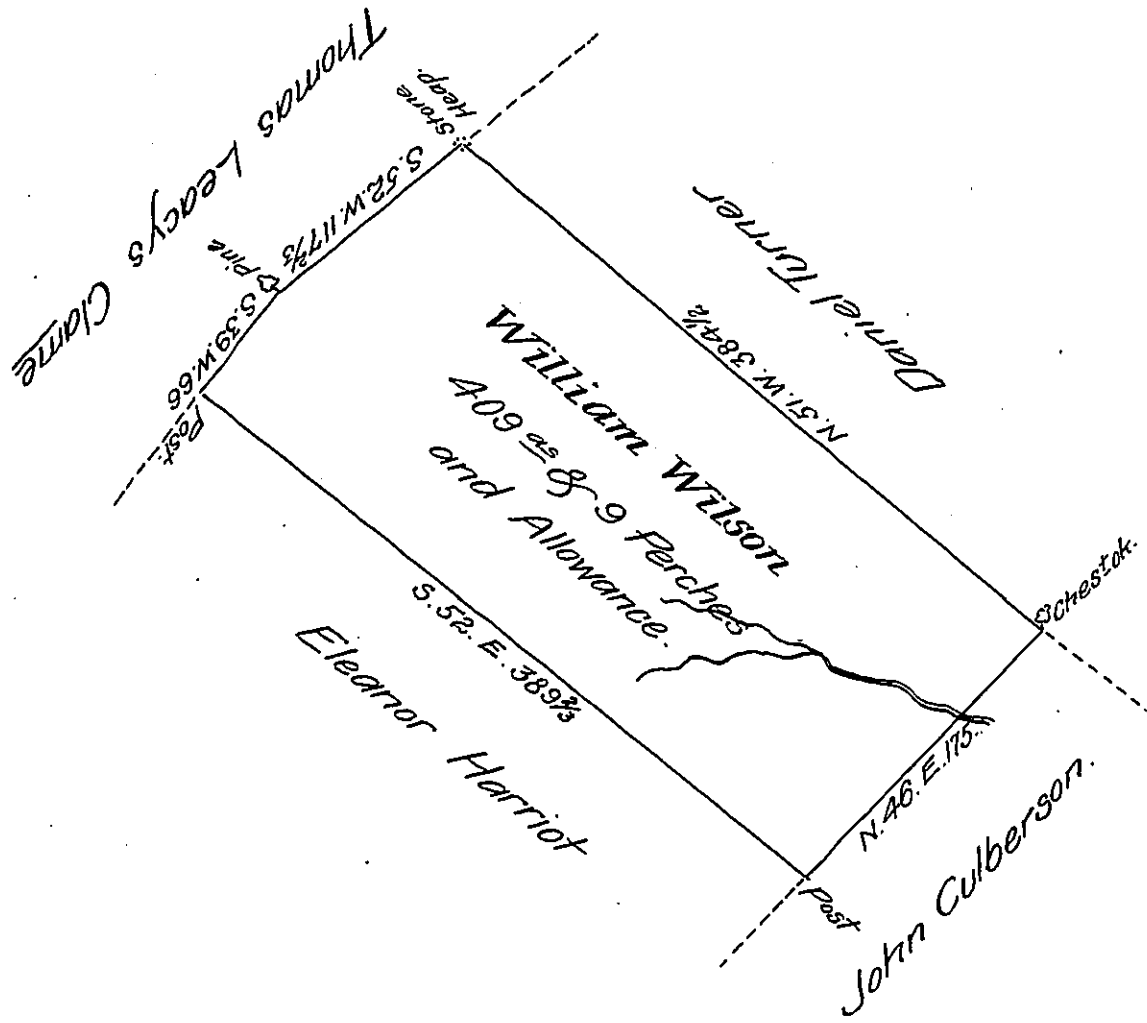 Thomas Leacys Clame
Stone
Heap.
S.52.W.117⅔
Pine
S.39.W.66
Post.
Daniel Turner
N.51.W.384½
William Wilson
409 as & 9 Perches
and Allowance.
S.52.E.389⅔
Eleanor Harriot
Chestok.
N.46.E.175..
Post
John Culberson.